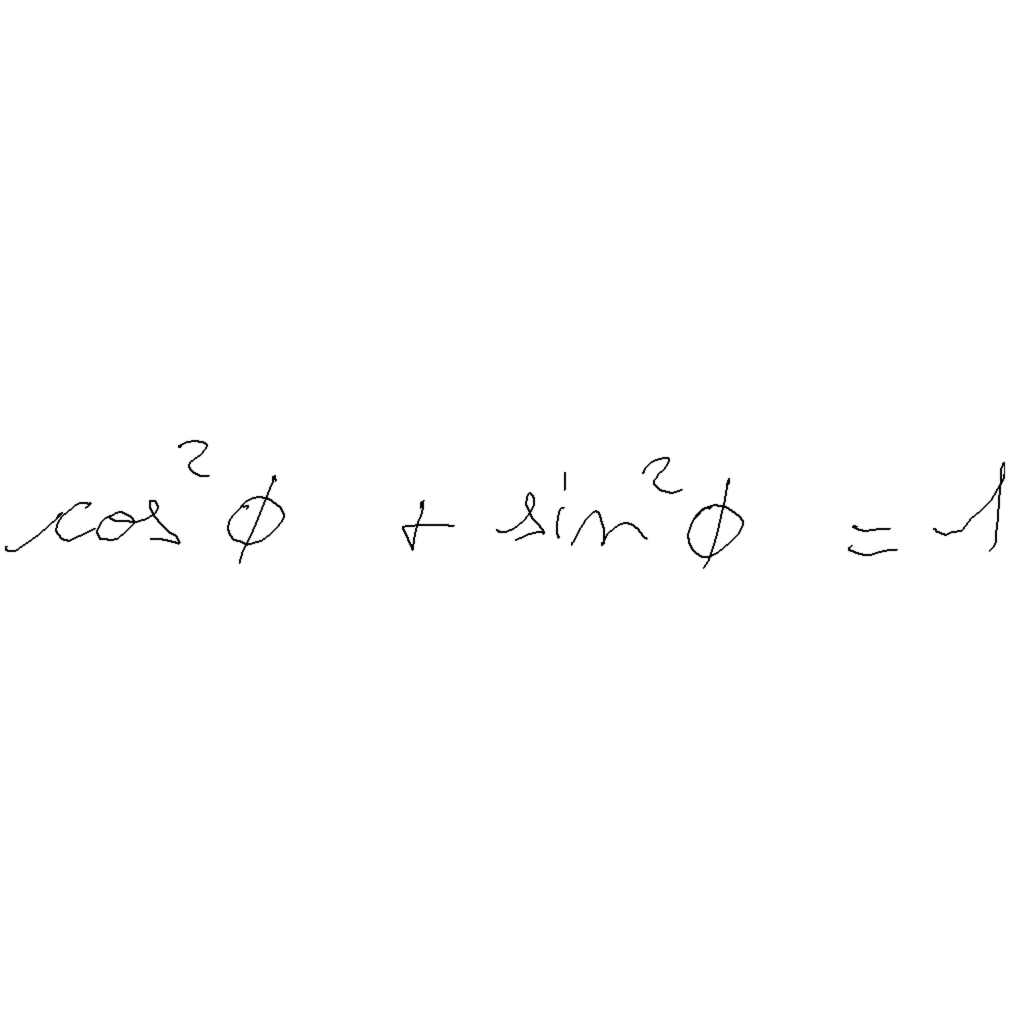 cos²ϕ + sin²ϕ = 1